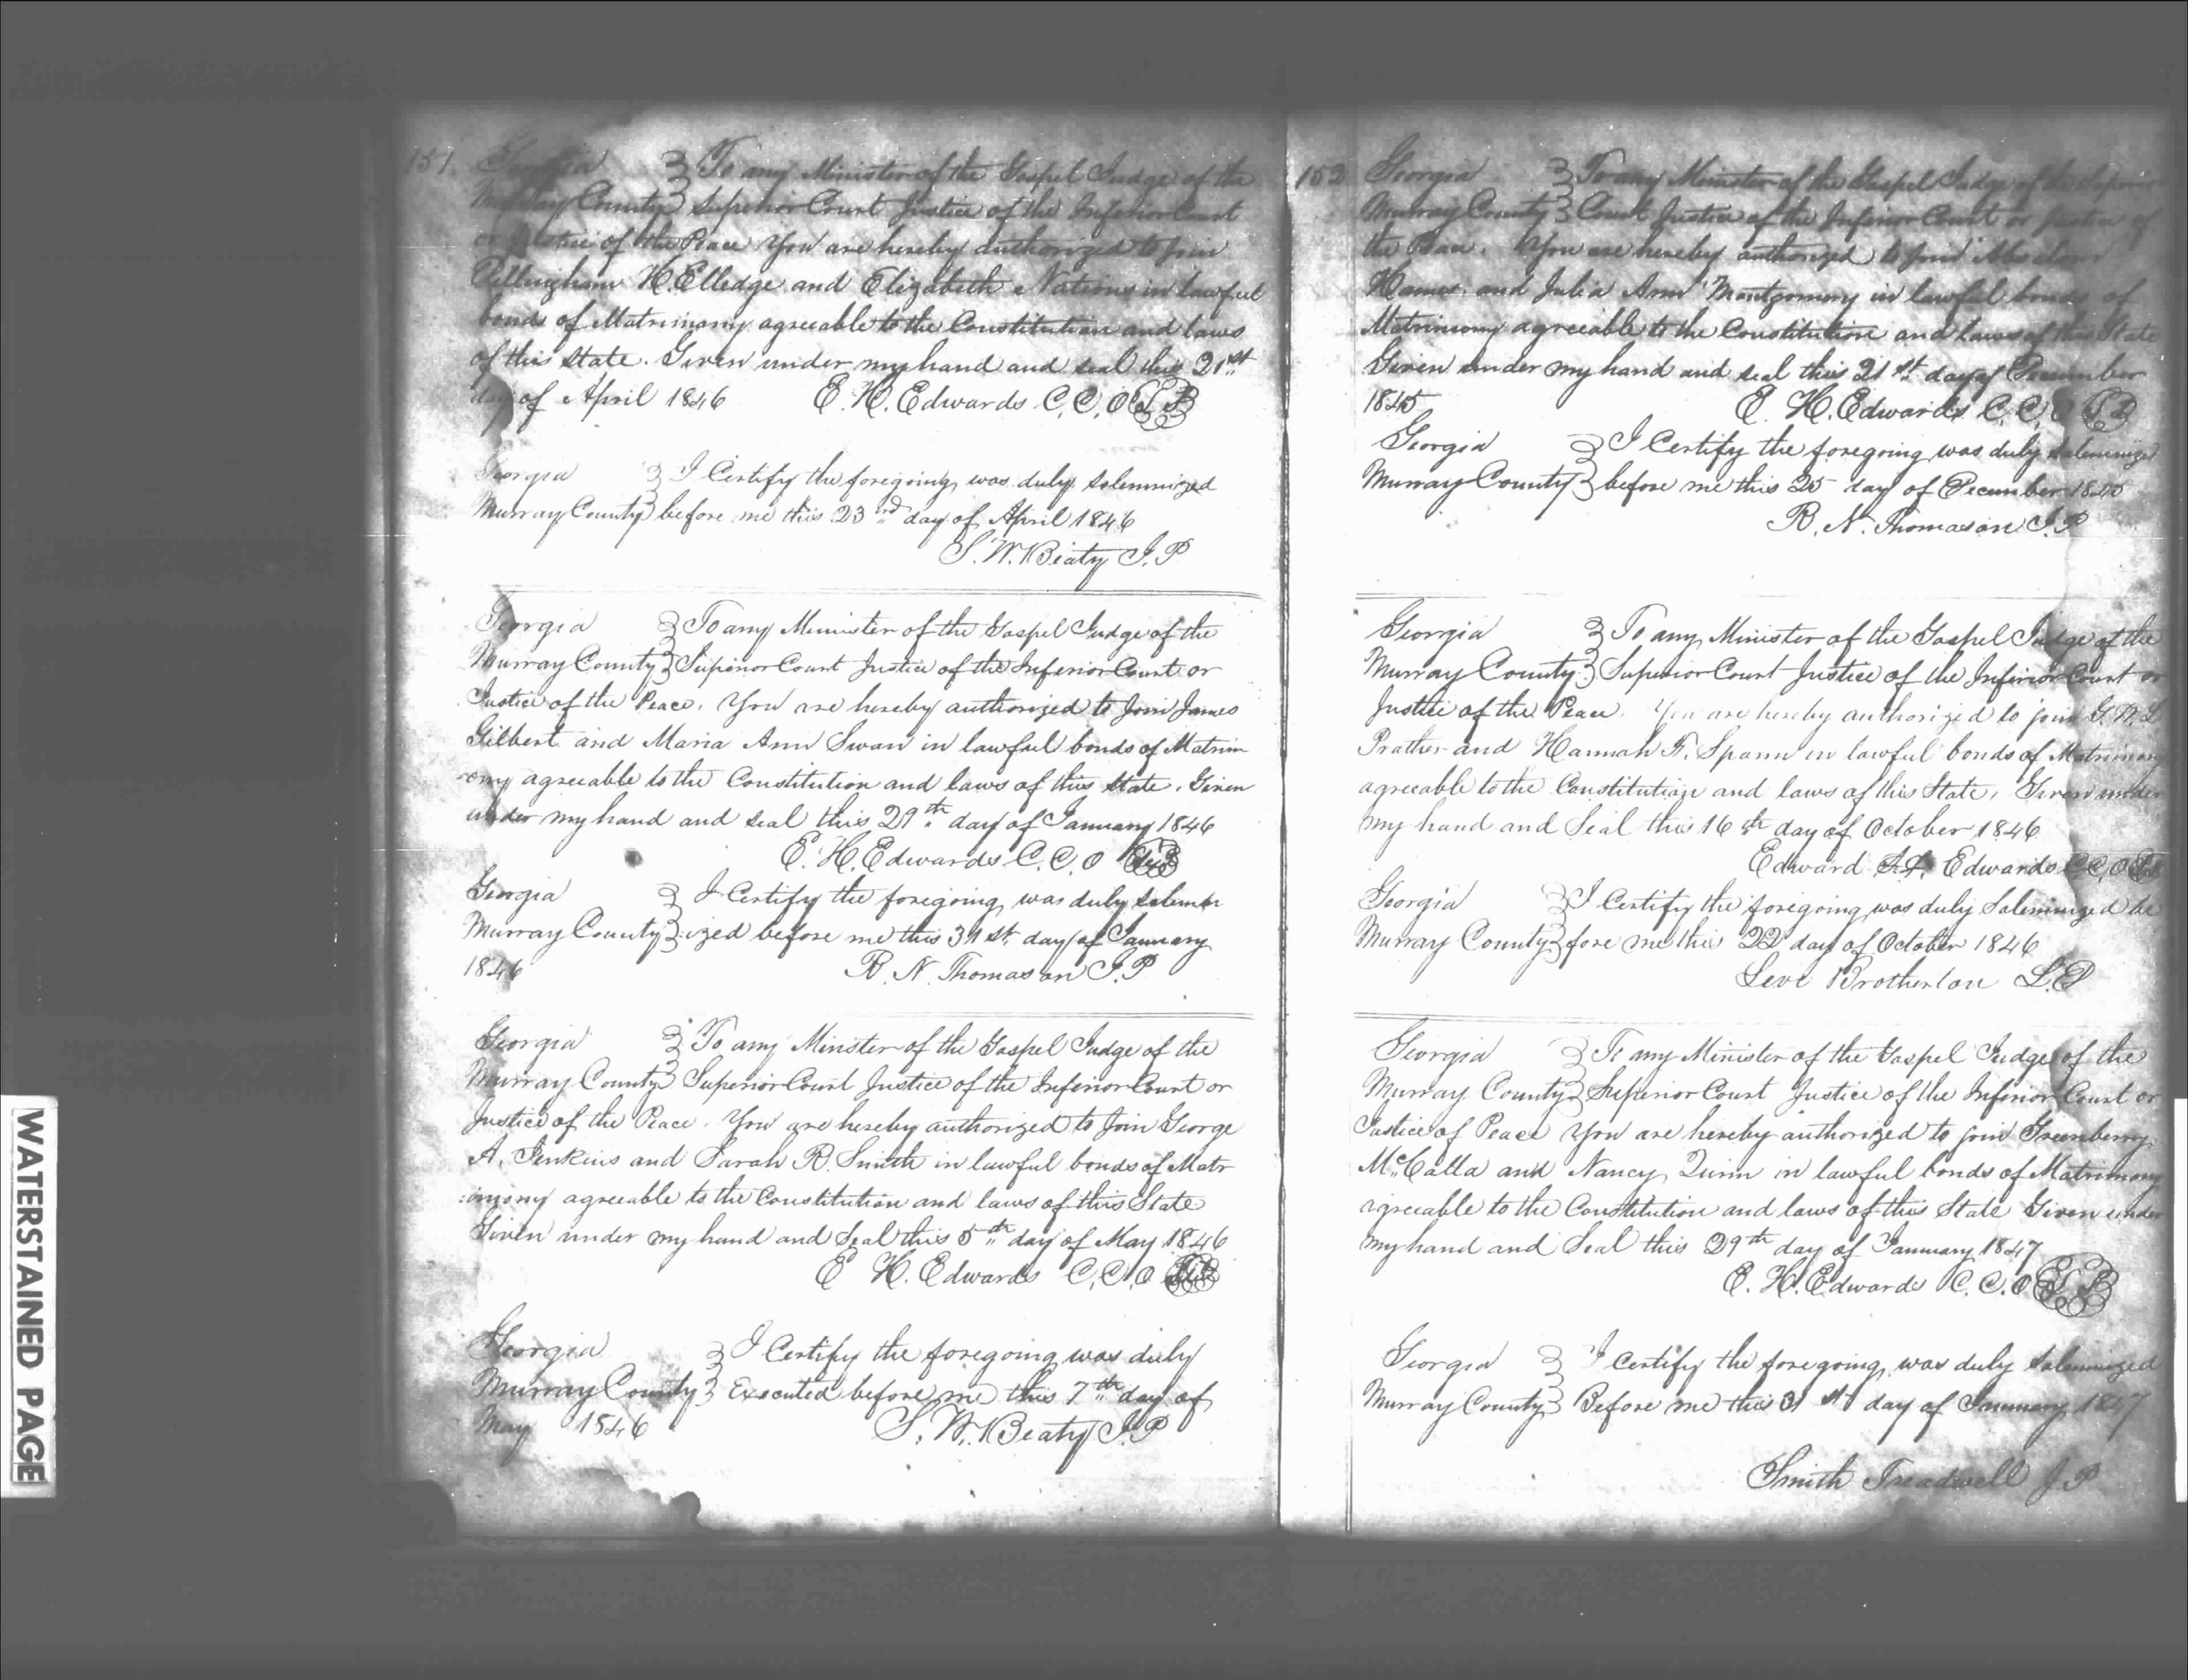 WATERSTAINED PAGE
151. Georgia } To any Minister of the Gospel Judge of the
Murray County } Superior Court Justice of the Inferior Court
or Justice of the Peace You are hereby authorized to Join
H. Elledge and Elizabeth Nations in lawful
bonds of Matrimony agreeable to the Constitution and laws
of this State. Given under my hand and seal this 21st
day of April 1846 E. H. Edwards C. C. O
Georgia } I Certify the foregoing was duly solemnized
Murray County } before me this 23rd day of April 1846
S. W. Beaty J. P
Georgia } To any Minister of the Gospel Judge of the
Murray County } Superior Court Justice of the Inferior Court or
Justice of the Peace. You are hereby authorized to Join James
Gilbert and Maria Ann Swan in lawful bonds of Matrim
-ony agreeable to the Constitution and laws of this State. Given
under my hand and seal this 29th day of January 1846
E. H. Edwards C. C. O
Georgia } I Certify the foregoing was duly solemn
Murray County } ized before me this 31st day of January
1846 R. N. Thomason J. P
Georgia } To any Minister of the Gospel Judge of the
Murray County } Superior Court Justice of the Inferior Court or
Justice of the Peace. You are hereby authorized to Join George
A. Jenkins and Sarah R. Smith in lawful bonds of Matr
imony agreeable to the Constitution and laws of this State
Given under my hand and Seal this 5th day of May 1846
E H. Edwards C. C. O
Georgia } I Certify the foregoing was duly
Murray County } Executed before me this 7th day of
May 1846 S. W. Beaty J. P
152 Georgia } To any Minister of the Gospel Judge of the Superior
Murray County } Court Justice of the Inferior Court or Justice of
the Peace. You are hereby authorized to Join Absalom
Hames and Julia Ann Montgomery in lawful bonds of
Matrimony agreeable to the Constitution and laws of this State
Given under my hand and seal this 21st day of December
1845 E. H. Edwards C. C. O
Georgia } I Certify the foregoing was duly solemnized
Murray County } before me this 25 day of December 1845
R. N. Thomason J. P
Georgia } To any Minister of the Gospel Judge of the
Murray County } Superior Court Justice of the Inferior Court or
Justice of the Peace. You are hereby authorized to join
Prather and Hannah F. Spann in lawful bonds of Matrimony
agreeable to the Constitution and laws of this State. Given under
my hand and Seal this 16th day of October 1846
Edward Edwards C. C. O
Georgia } I Certify the foregoing was duly Solemnized be
Murray County } fore me this 22 day of October 1846
Levi Brotherton
Georgia } To any Minister of the Gospel Judge of the
Murray County } Superior Court Justice of the Inferior Court or
Justice of Peace You are hereby authorized to join Greenberry
McCalla and Nancy Quinn in lawful bonds of Matrimony
agreeable to the Constitution and laws of this State Given under
my hand and Seal this 29th day of January 1847
E. H. Edwards C. C. O
Georgia } I Certify the foregoing was duly Solemnized
Murray County } Before me this 31st day of January 1847
Smith Treadwell J. P